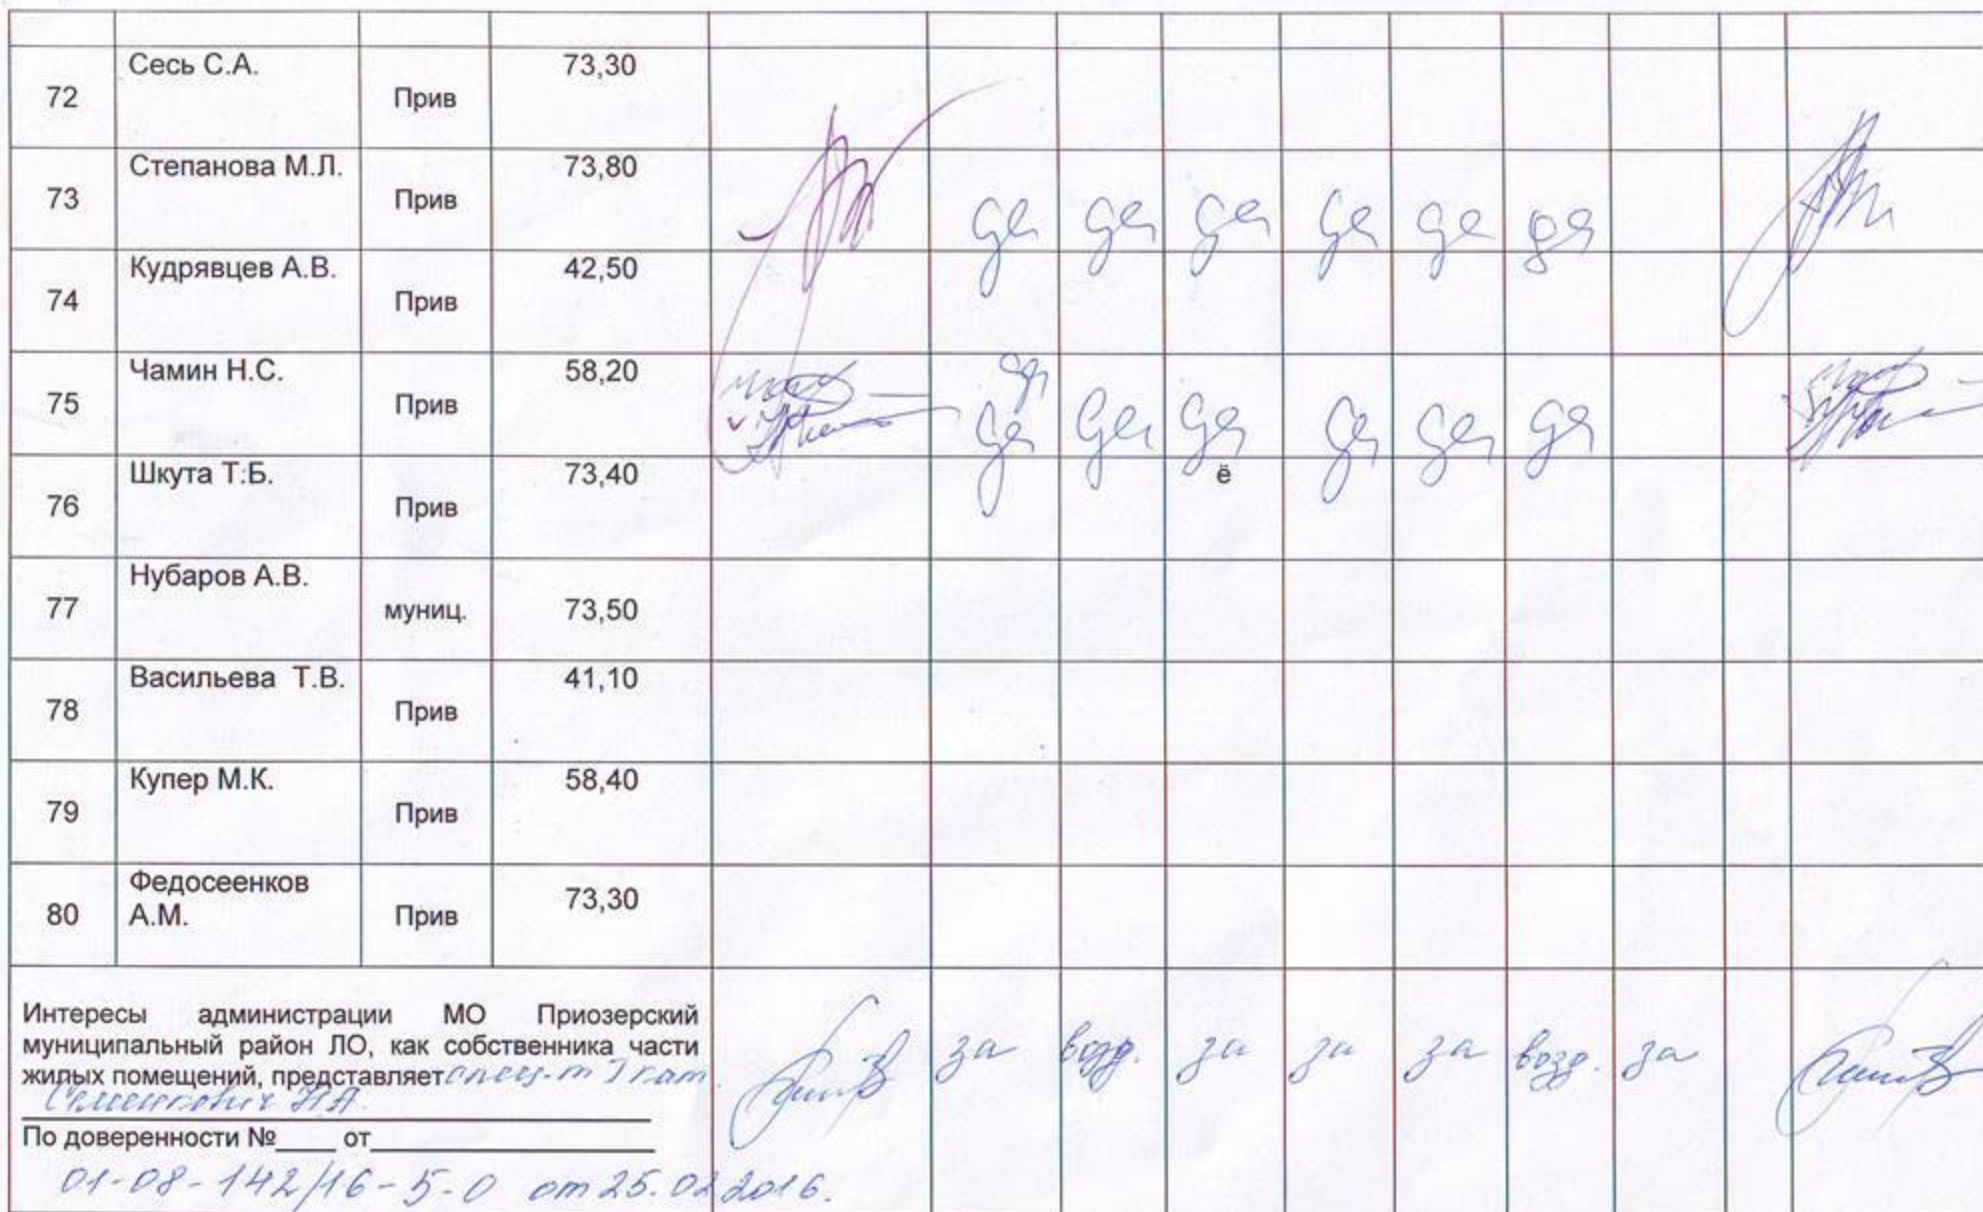 72 Сесь С.А. Прив 73,30
73 Степанова М.Л. Прив 73,80 да да да да да да
74 Кудрявцев А.В. Прив 42,50
75 Чамин Н.С. Прив 58,20 да да да да да да да
76 Шкута Т.Б. Прив 73,40 ё
77 Нубаров А.В. муниц. 73,50
78 Васильева Т.В. Прив 41,10
79 Купер М.К. Прив 58,40
80 Федосеенков А.М. Прив 73,30
Интересы администрации МО Приозерский
муниципальный район ЛО, как собственника части
жилых помещений, представляет спец-т I кат.
за возд. за за за возд. за
По доверенности №____ от
01-08-142/16-5-0 от 25.02.2016.